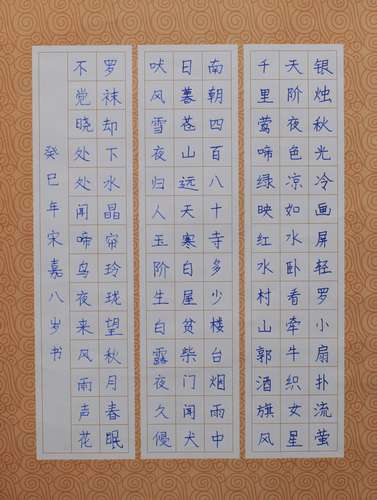 银烛秋光冷画屏轻罗小扇扑流萤
天阶夜色凉如水卧看牵牛织女星
千里莺啼绿映红水村山郭酒旗风
南朝四百八十寺多少楼台烟雨中
日暮苍山远天寒白屋贫柴门闻犬
吠风雪夜归人玉阶生白露夜久侵
罗袜却下水晶帘玲珑望秋月春眠
不觉晓处处闻啼鸟夜来风雨声花
癸巳年宋嘉八岁书